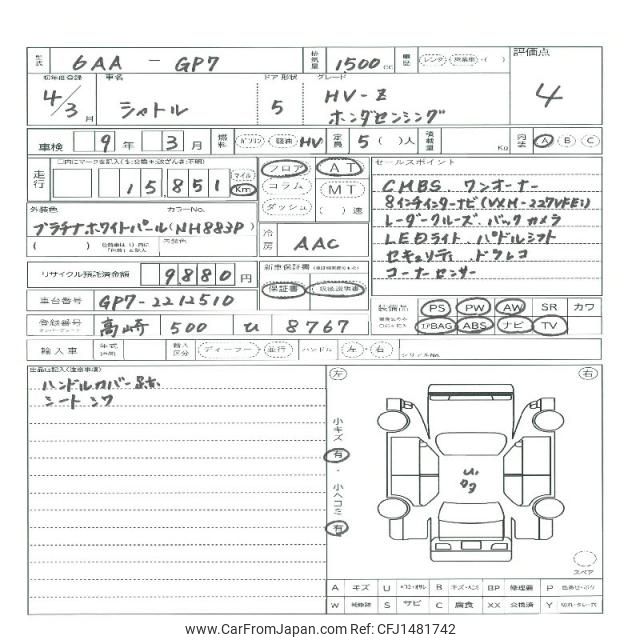 型式 6AA - GP7 排気量 1500 cc 車歴 レンタ・営業車・( ) 評価点
初年度登録 車名 ドア 形状 グレード
4/3月 シャトル 5 HV-Z ホンダセンシング 4
車検 9 年 3 月 燃料 ガソリン・軽油・HV 定員 5 ( )人 積載量 Kg 内装 A B C
走行 15,851 マイル Km フロア コラム ダッシュ AT MT ( )速
外装色 カラーNo.
プラチナホワイトパール(NH883P)
内装色
冷房 AAC
リサイクル預託済金額 9880 円 新車保証書 保証書・取扱説明書
車台番号 GP7-2212510
登録番号 高崎 500 ひ 8767
セールスポイント
CMBS. ワンオーナー
8インチインターナビ(VXM-227VFEi)
レーダークルーズ. バックカメラ
LEDライト. パドルシフト
セキュリティ. ドラレコ
コーナーセンサー
装備品 PS PW AW SR カワ
エアBAG ABS ナビ TV
輸入車 年式 輸入区分 ディーラー・並行 ハンドル 左・右 シリアルNo.
出品店記入(注意事項)
ハンドルカバー跡
シートシワ
左 右
小キズ 有・小ヘコミ 有
スペア
A キズ U B BP 修理要 P
W S サビ C 腐食 XX 交換済 Y
www.CarFromJapan.com - CFJ1481742